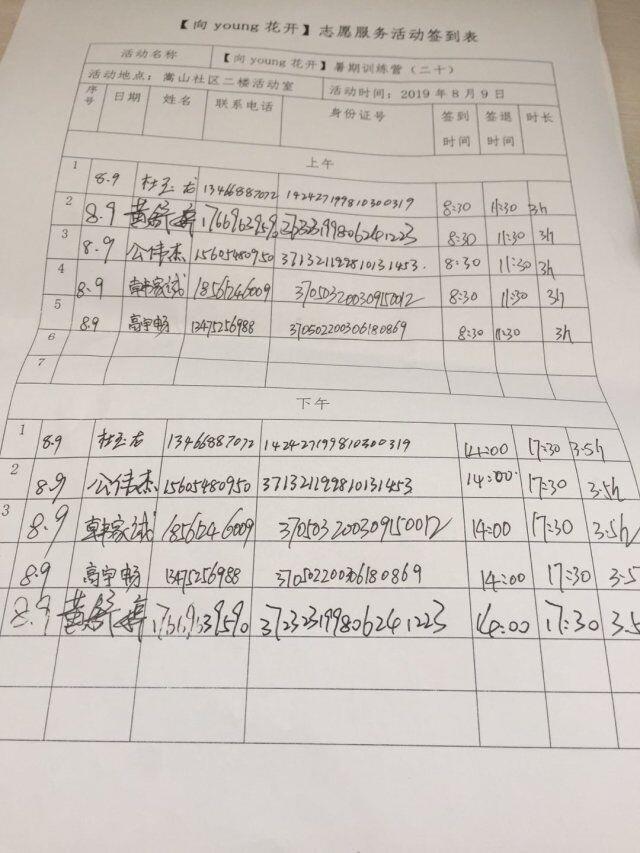 【向 young 花开】志愿服务活动签到表
活动名称 【向 young 花开】暑期训练营（二十）
活动地点：嵩山社区二楼活动室 活动时间：2019 年 8 月 9 日
序号 日期 姓名 联系电话 身份证号 签到时间 签退时间 时长
上午
1 8.9 杜玉龙 13466887072 142427199810300319 8:30 11:30 3h
2 8.9 黄 372323199806241223 8:30 11:30 3h
3 8.9 公伟杰 15605480950 371321199810131453. 8:30 11:30 3h
4 8.9 韩家诚 18561246009 370503200309150012 8:30 11:30 3h
5 8.9 高宇畅 13475256988 370502200306180869 8:30 11:30 3h
6
7
下午
1 8.9 杜玉龙 13466887072 142427199810300319 14:00 17:30 3.5h
2 8.9 公伟杰 15605480950 371321199810131453 14:00 17:30 3.5h
3 8.9 韩家诚 18561246009 370503200309150012 14:00 17:30 3.5h
8.9 高宇畅 13475256988 370502200306180869 14:00 17:30 3.5
8.9 黄 372323199806241223 14:00 17:30 3.5